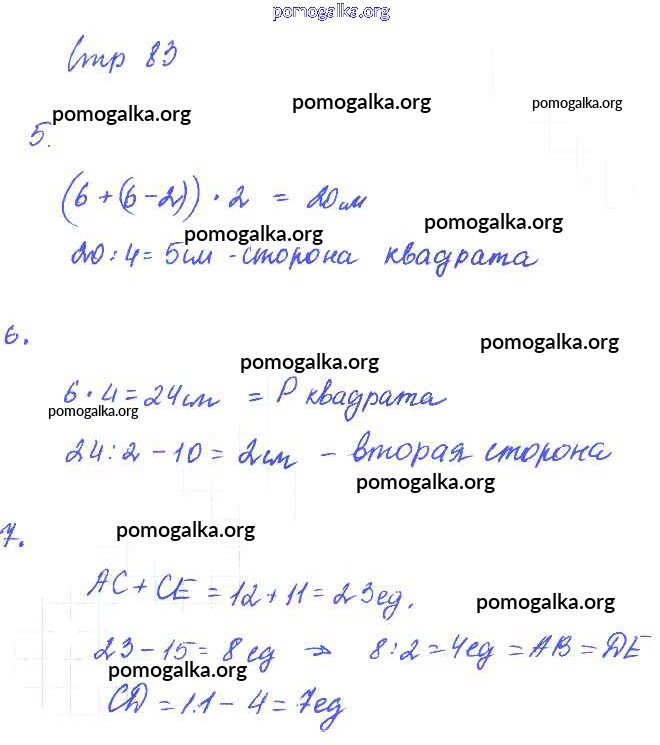 pomogalka.org
Стр 83
pomogalka.org pomogalka.org pomogalka.org
5.
(6 + (6 - 2)) · 2 = 20 см
pomogalka.org pomogalka.org
20 : 4 = 5 см - сторона квадрата
6.
pomogalka.org pomogalka.org
6 · 4 = 24 см = P квадрата
pomogalka.org
24 : 2 - 10 = 2 см - вторая сторона
pomogalka.org
7.
pomogalka.org
AC + CE = 12 + 11 = 23 ед.
pomogalka.org
23 - 15 = 8 ед ⇒ 8 : 2 = 4 ед = AB = DE
pomogalka.org
CD = 11 - 4 = 7 ед